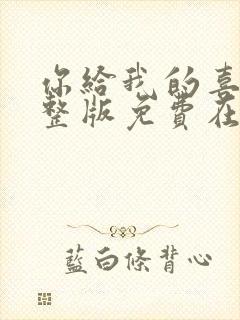 你給我的喜
整版免費在
藍白條背心